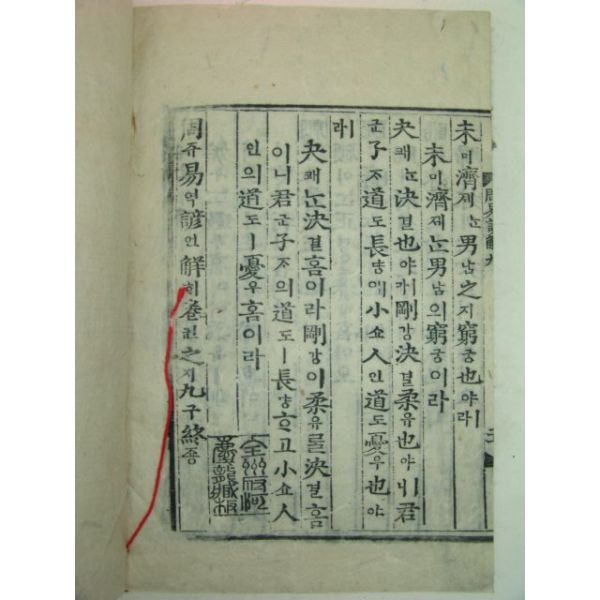 周易諺解九
未미濟졔ᄂᆞᆫ男남之지窮궁也야ㅣ라
未미濟졔ᄂᆞᆫ男남의窮궁이라
夬쾌ᄂᆞᆫ決결也야ㅣ라剛강決결柔유也야ㅣ니君
군子ᄌᆞ道도長댱애小쇼人인道도憂우也야
ㅣ라
夬쾌ᄂᆞᆫ決결홈이라剛강이柔유를決결홈
이니君군子ᄌᆞ의道도ㅣ長댱ᄒᆞ고小쇼人
인의道도ㅣ憂우홈이라
全州府河
慶龍藏板
周쥬易역諺언解ᄒᆡ卷권之지九구終죵